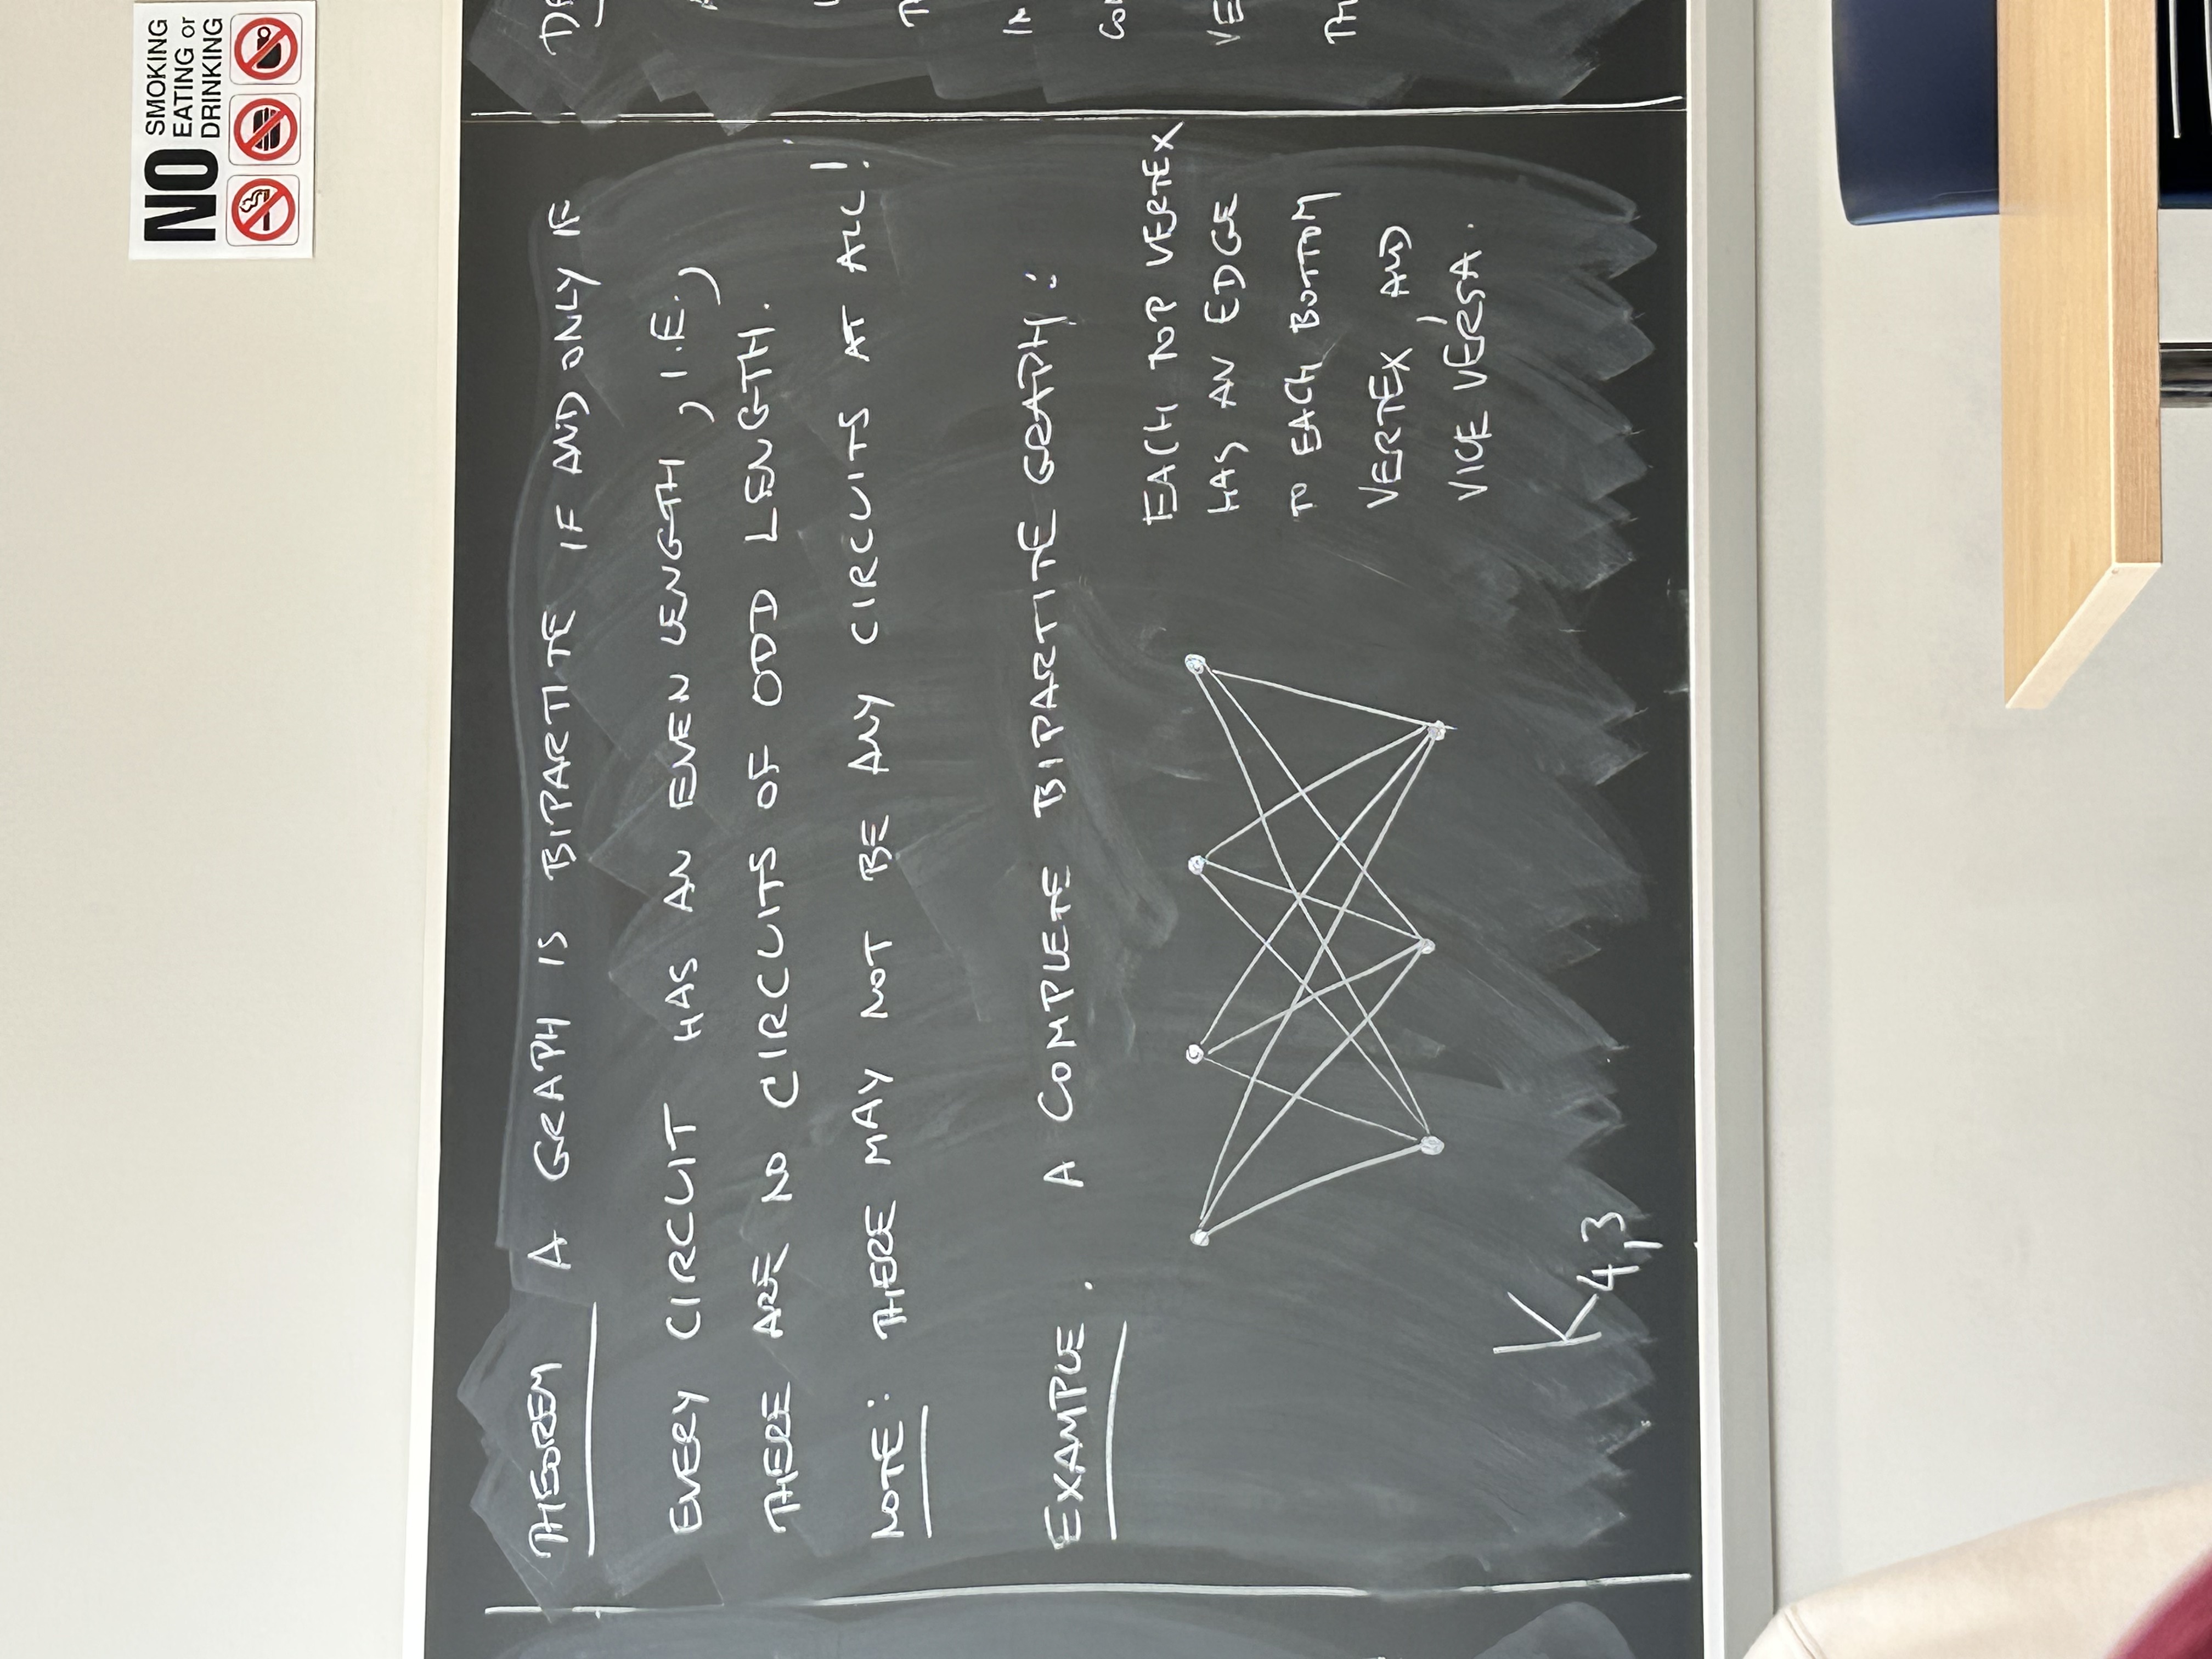 NO SMOKING
EATING or
DRINKING
THEOREM A GRAPH IS BIPARTITE IF AND ONLY IF
EVERY CIRCUIT HAS AN EVEN LENGTH, I.E.,
THERE ARE NO CIRCUITS OF ODD LENGTH.
NOTE: THERE MAY NOT BE ANY CIRCUITS AT ALL!
EXAMPLE. A COMPLETE BIPARTITE GRAPH:
EACH TOP VERTEX
HAS AN EDGE
TO EACH BOTTOM
VERTEX, AND
VICE VERSA.
K4,3